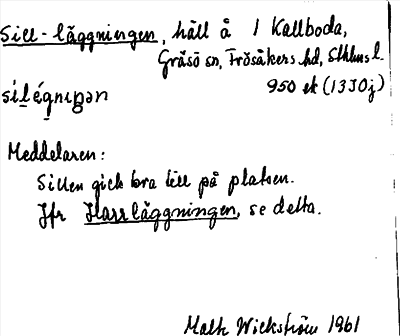 Sill-läggningen, häll å / Kallboda,
Gräsö sn, Frösåkers hd, Sthlms l.
950 ek (1330j)
Meddelaren:
Sillen gick bra till på platsen.
Jfr Harrläggningen, se detta.
Math Wickström 1961